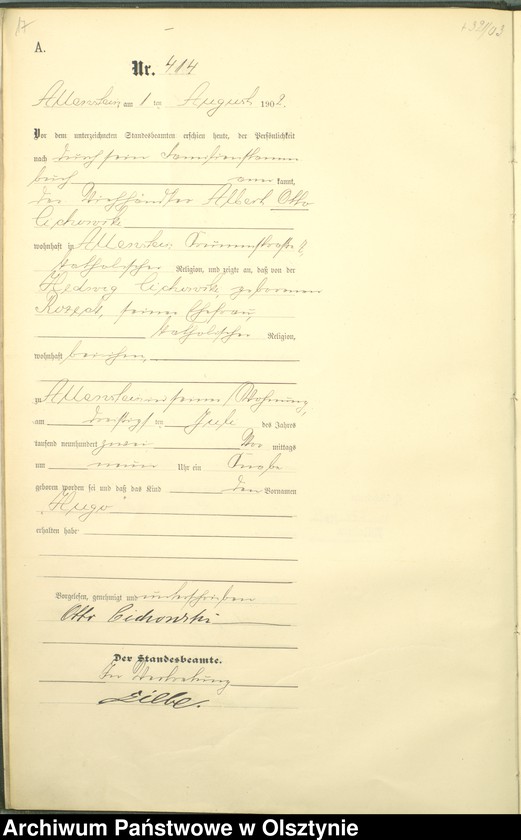 A.
Nr. 414
Allenstein am 1 ten August 1902.
Vor dem unterzeichneten Standesbeamten erschien heute, der Persönlichkeit
nach durch sein Familienstamm
buch anerkannt,
der Viehhändler Albert Otto
Cichowski
wohnhaft in Allenstein,
katholischer Religion, und zeigte an, daß von der
Hedwig Cichowski, geborenen
seiner Ehefrau,
katholischer Religion,
wohnhaft bei ihm,
zu Allenstein in seiner Wohnung,
am dreißigsten Juli des Jahres
tausend neunhundert zwei Vor mittags
um neun Uhr ein Knabe
geboren worden sei und daß das Kind den Vornamen
„Hugo"
erhalten habe
Vorgelesen, genehmigt und unterschrieben
Otto Cichowski
Der Standesbeamte.
In Vertretung
Archiwum Państwowe w Olsztynie